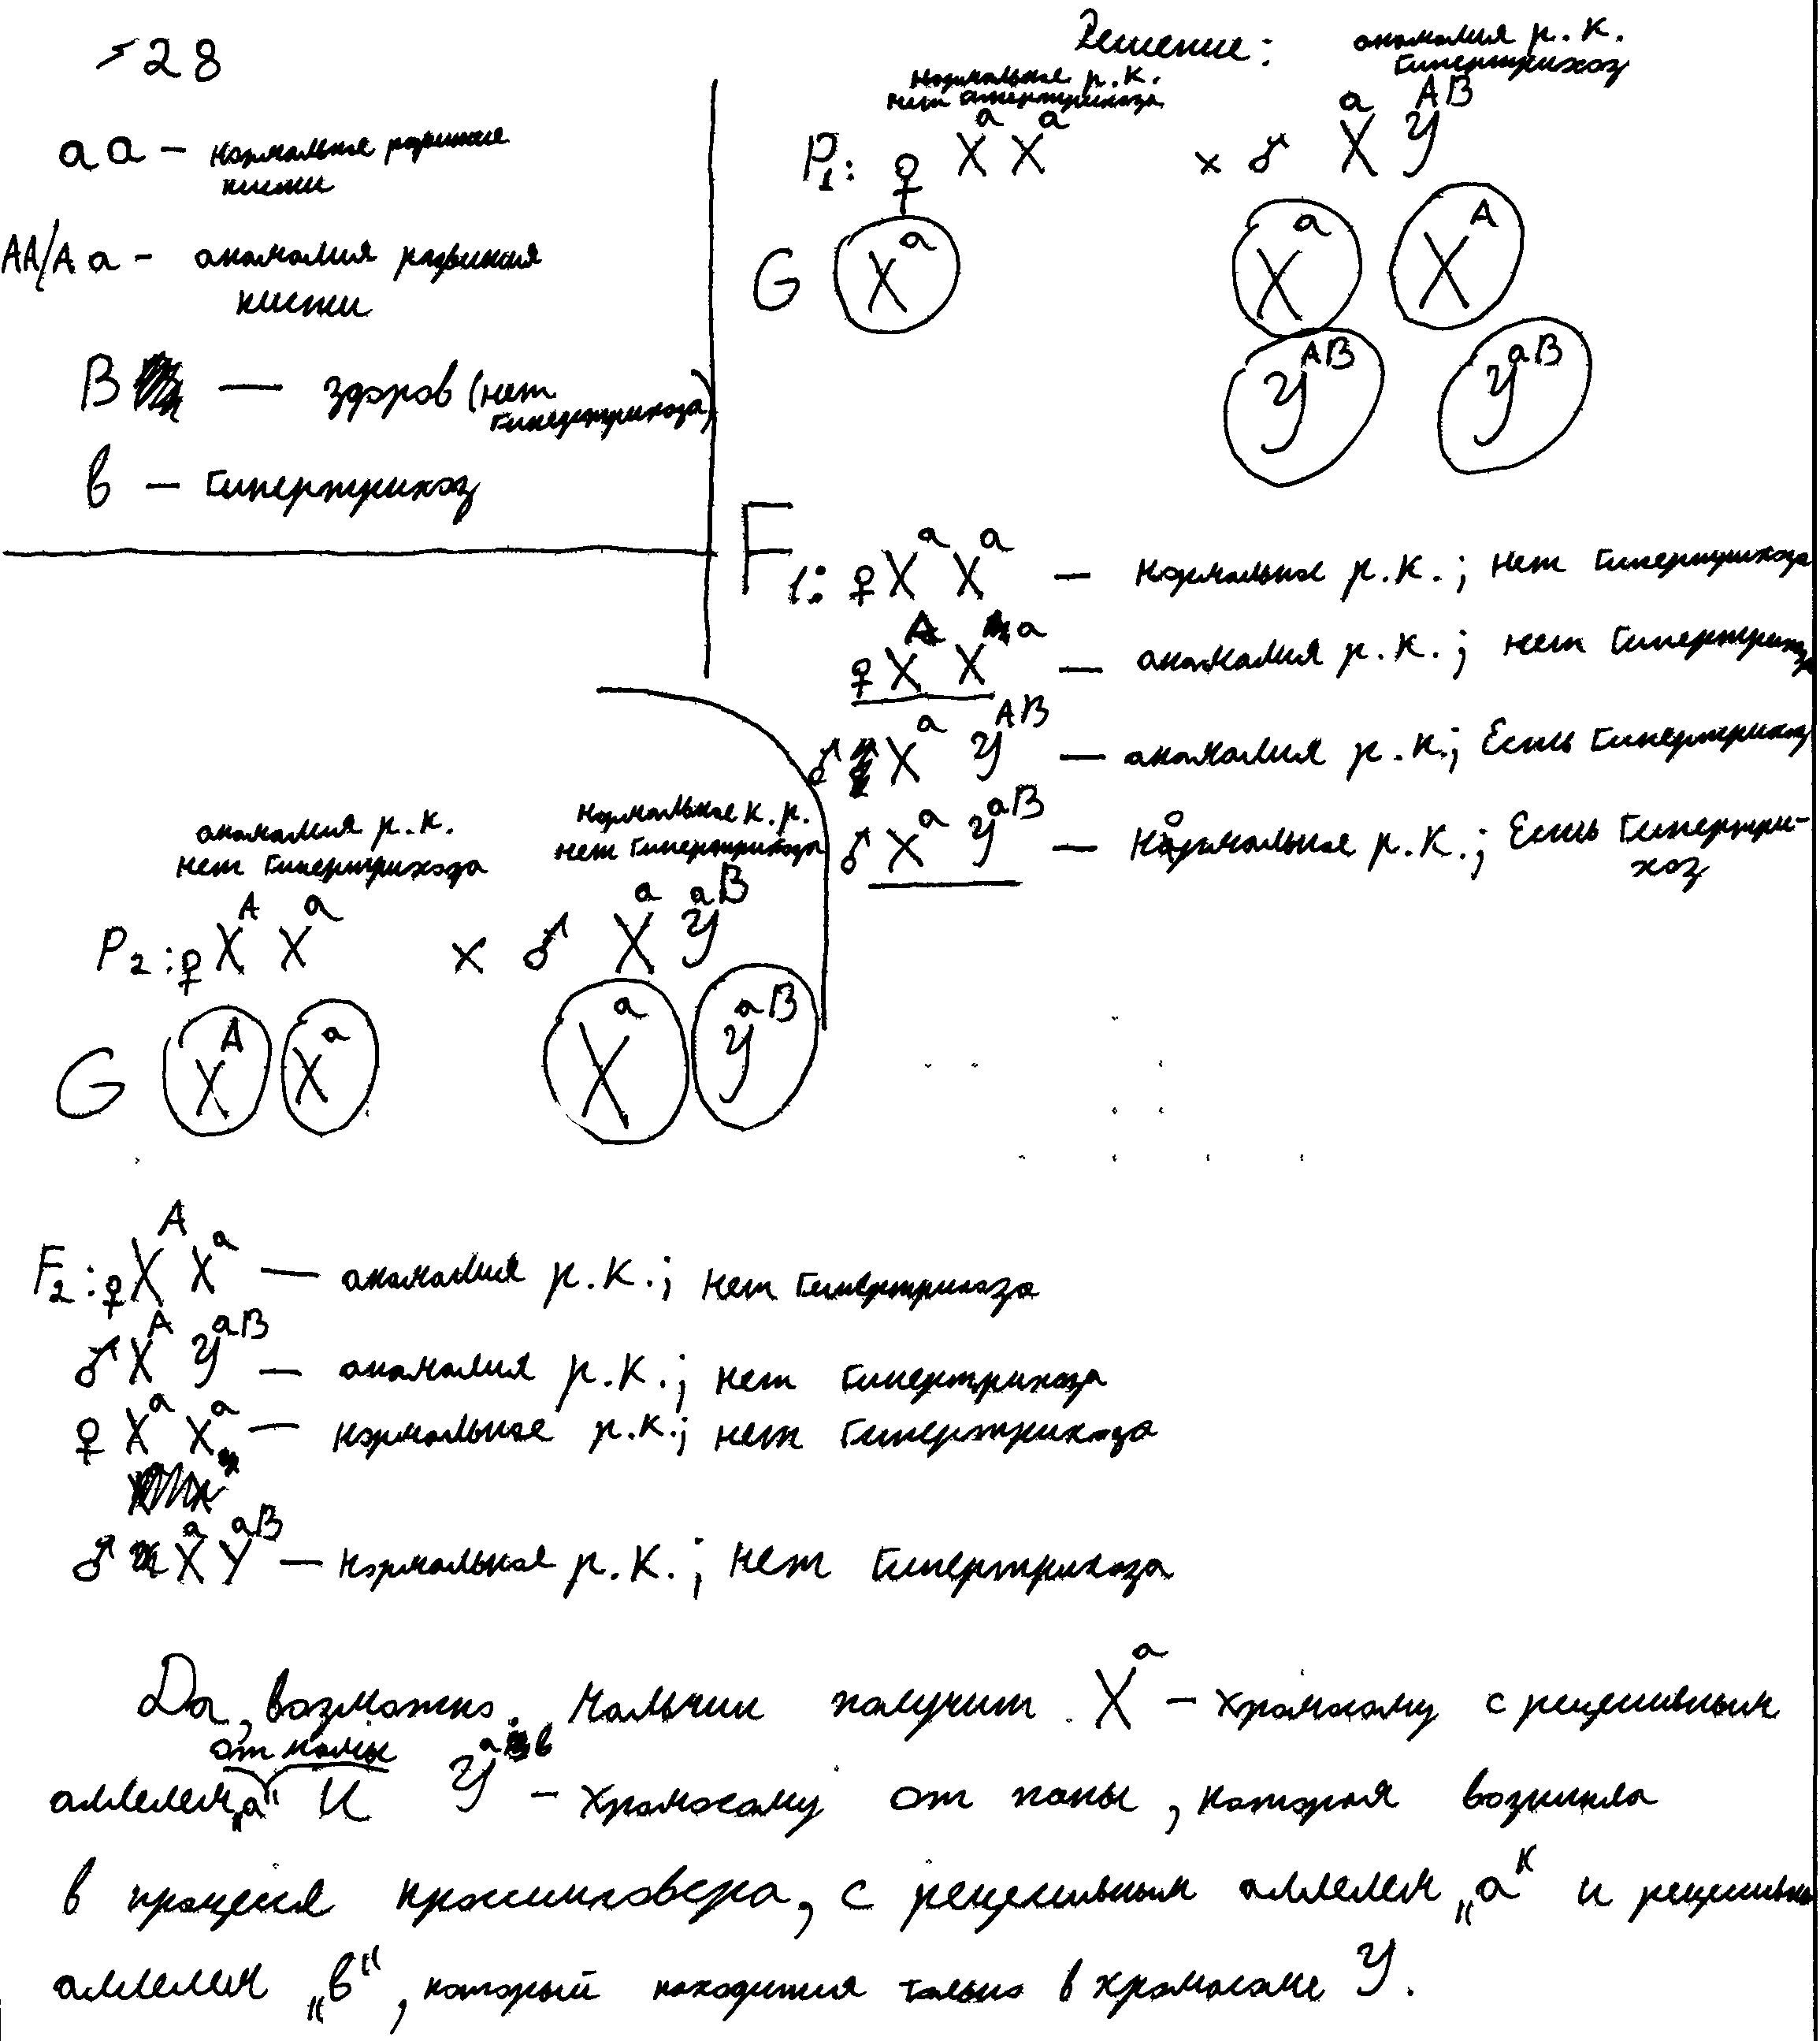 28
aa – нормальное развитие
кисти
AA/Aa – аномалия развития
кисти
B — здоров (нет
гипертрихоза)
в — Гипертрихоз
Решение:
нормальное р.к.
нет гипертрихоза
аномалия р.к.
Гипертрихоз
P₁: ♀ XᵃXᵃ × ♂ XᵃYᴬᴮ
G Xᵃ Xᵃ Xᴬ
Yᴬᴮ YᵃᴮF₁: ♀ XᵃXᵃ — нормальное р.к.; нет Гипертрихоза
♀ XᴬXᵃ — аномалия р.к.; нет Гипертрихоза
♂ XᵃYᴬᴮ — аномалия р.к.; Есть Гипертрихоз
♂ XᵃYᵃᴮ — Нормальное р.к.; Есть Гипертри-
хоз
аномалия р.к.
нет Гипертрихоза
нормальное к.р.
нет Гипертрихоза
P₂: ♀ XᴬXᵃ × ♂ XᵃYᵃᴮ
G Xᴬ Xᵃ Xᵃ Yᵃᴮ
F₂: ♀ XᴬXᵃ — аномалия р.к.; нет Гипертрихоза
♂ XᴬYᵃᴮ — аномалия р.к.; нет Гипертрихоза
♀ XᵃXᵃ — нормальное р.к.; нет Гипертрихоза
♂ XᵃYᵃᴮ — нормальное р.к.; нет Гипертрихоза
Да, возможно. Мальчик получит Xᵃ – хромосому с рецесивным
от мамы
аллелем „a" и Yᵃᵇ – хромосому от папы, которая возникла
в процессе кроссинговера, с рецесивным аллелем „a" и рецесивны
аллелем „в", который находится только в хромосоме Y.